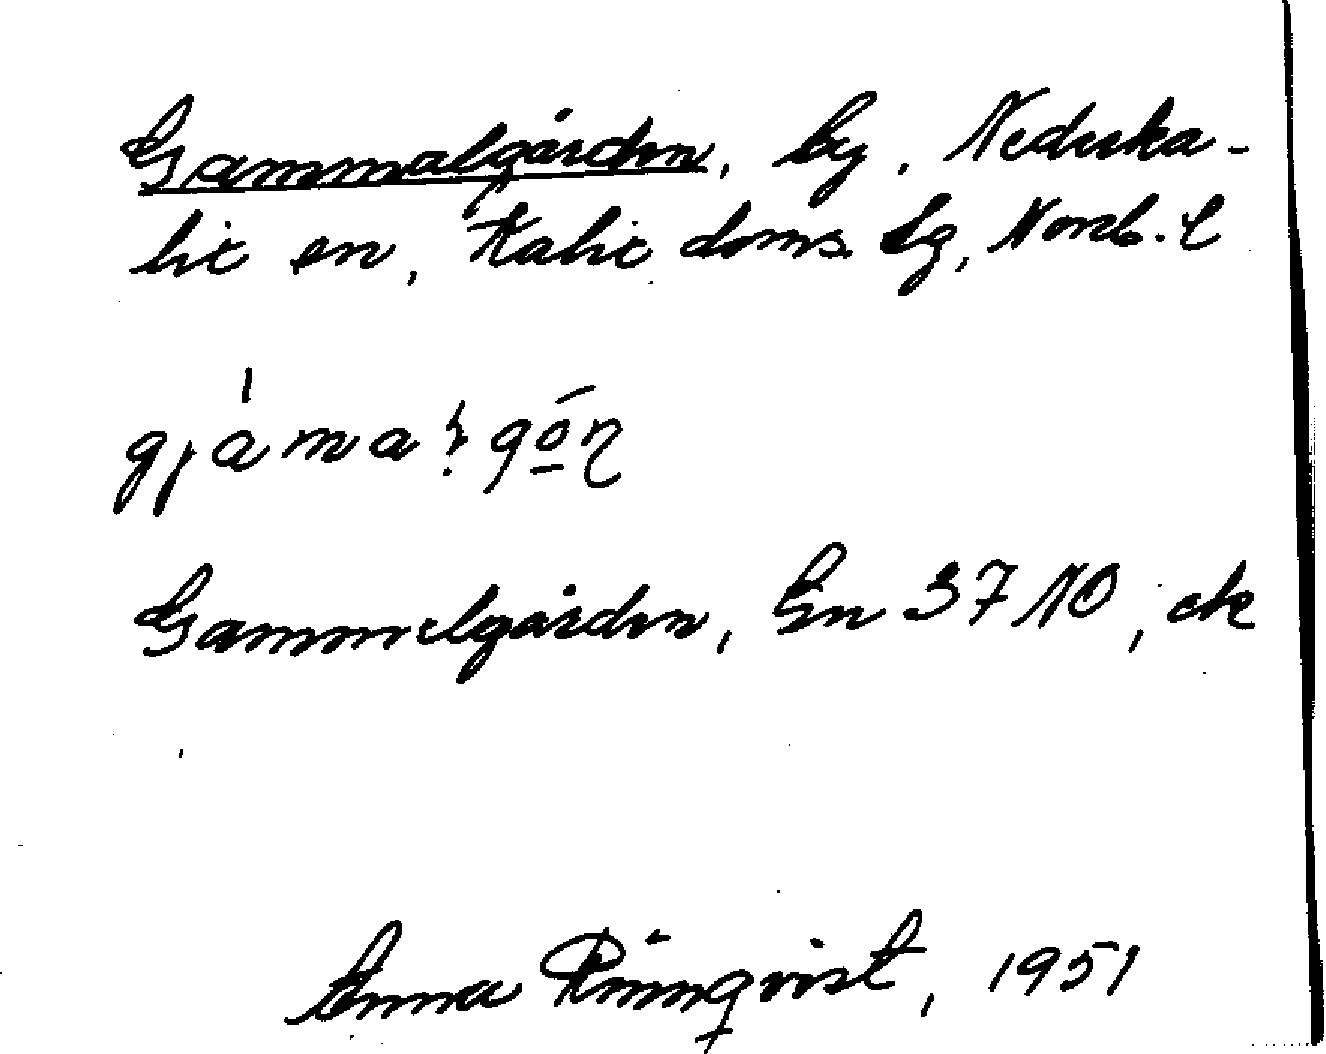 Gammalgården, by, Nederka-
lix sn, Kalix doms. lg, Norrb. l

Gammelgården, Gn 37 NO, ek
Anna Rönnqvist, 1951